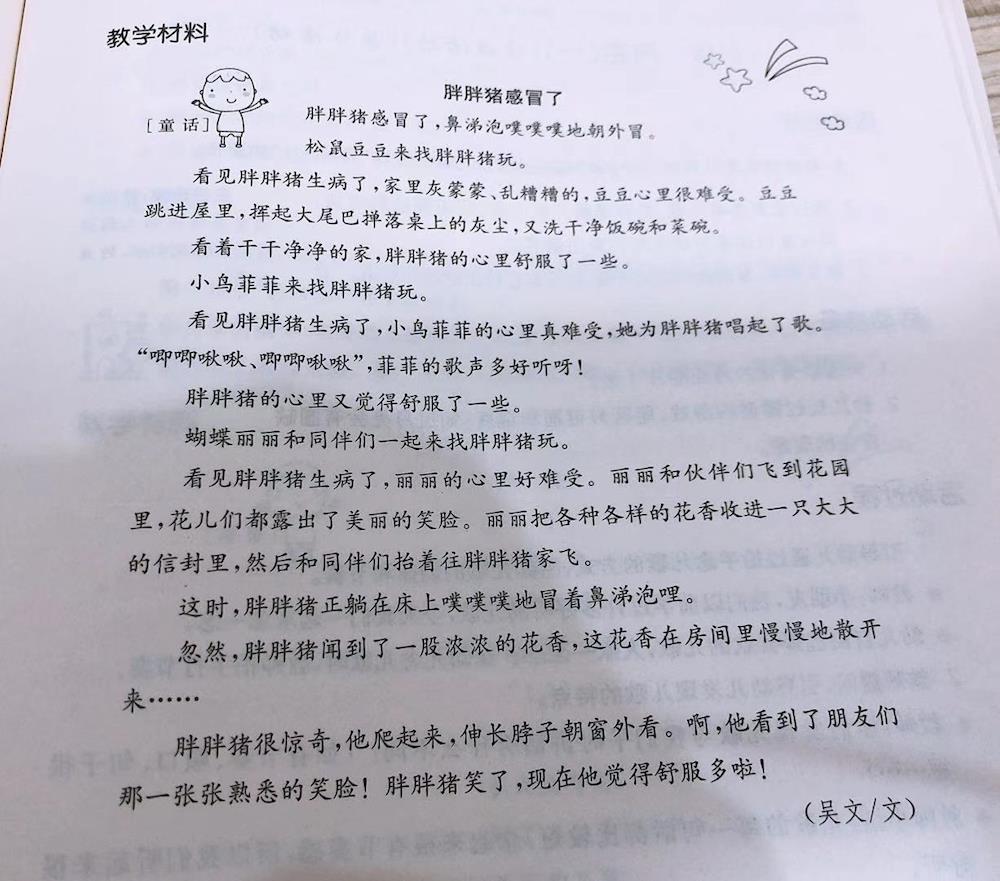 教学材料
胖胖猪感冒了
[童话]
胖胖猪感冒了，鼻涕泡噗噗噗地朝外冒。
松鼠豆豆来找胖胖猪玩。
看见胖胖猪生病了，家里灰蒙蒙、乱糟糟的，豆豆心里很难受。豆豆
跳进屋里，挥起大尾巴掸落桌上的灰尘，又洗干净饭碗和菜碗。
看着干干净净的家，胖胖猪的心里舒服了一些。
小鸟菲菲来找胖胖猪玩。
看见胖胖猪生病了，小鸟菲菲的心里真难受，她为胖胖猪唱起了歌。
“唧唧啾啾、唧唧啾啾”，菲菲的歌声多好听呀！
胖胖猪的心里又觉得舒服了一些。
蝴蝶丽丽和同伴们一起来找胖胖猪玩。
看见胖胖猪生病了，丽丽的心里好难受。丽丽和伙伴们飞到花园
里，花儿们都露出了美丽的笑脸。丽丽把各种各样的花香收进一只大大
的信封里，然后和同伴们抬着往胖胖猪家飞。
这时，胖胖猪正躺在床上噗噗噗地冒着鼻涕泡哩。
忽然，胖胖猪闻到了一股浓浓的花香，这花香在房间里慢慢地散开
来……
胖胖猪很惊奇，他爬起来，伸长脖子朝窗外看。啊，他看到了朋友们
那一张张熟悉的笑脸！胖胖猪笑了，现在他觉得舒服多啦！
（吴文/文）